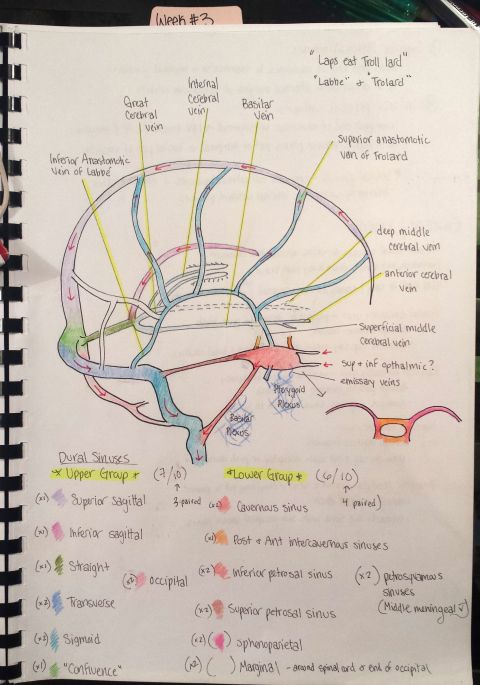 Week #3
"Laps eat Troll lard"
"Labbe" + "Trolard"
Great
Cerebral
vein
Internal
Cerebral
vein
Basilar
Vein
Superior anastomotic
vein of Trolard
Inferior Anastomotic
Vein of Labbe
deep middle
cerebral vein
anterior cerebral
vein
Superficial middle
cerebral vein
sup + inf opthalmic?
emissary veins
Pterygoid
Plexus
Basilar
Plexus
Dural Sinuses
* Upper Group *
(7/10)
3 paired
* Lower Group *
(6/10)
4 paired
(x1) Superior sagittal
(x1) Inferior sagittal
(x1) Straight
(x2) occipital
(x2) Transverse
(x2) Sigmoid
(x1) "Confluence"
(x2) Cavernous sinus
Post + Ant intercavernous sinuses
(x2) Inferior petrosal sinus
(x2) Superior petrosal sinus
(x2) ( ) sphenoparietal
(x2) ( ) Marginal - around spinal cord @ end of occipital
(x2) petrosquamous
sinuses
(Middle meningeal v)